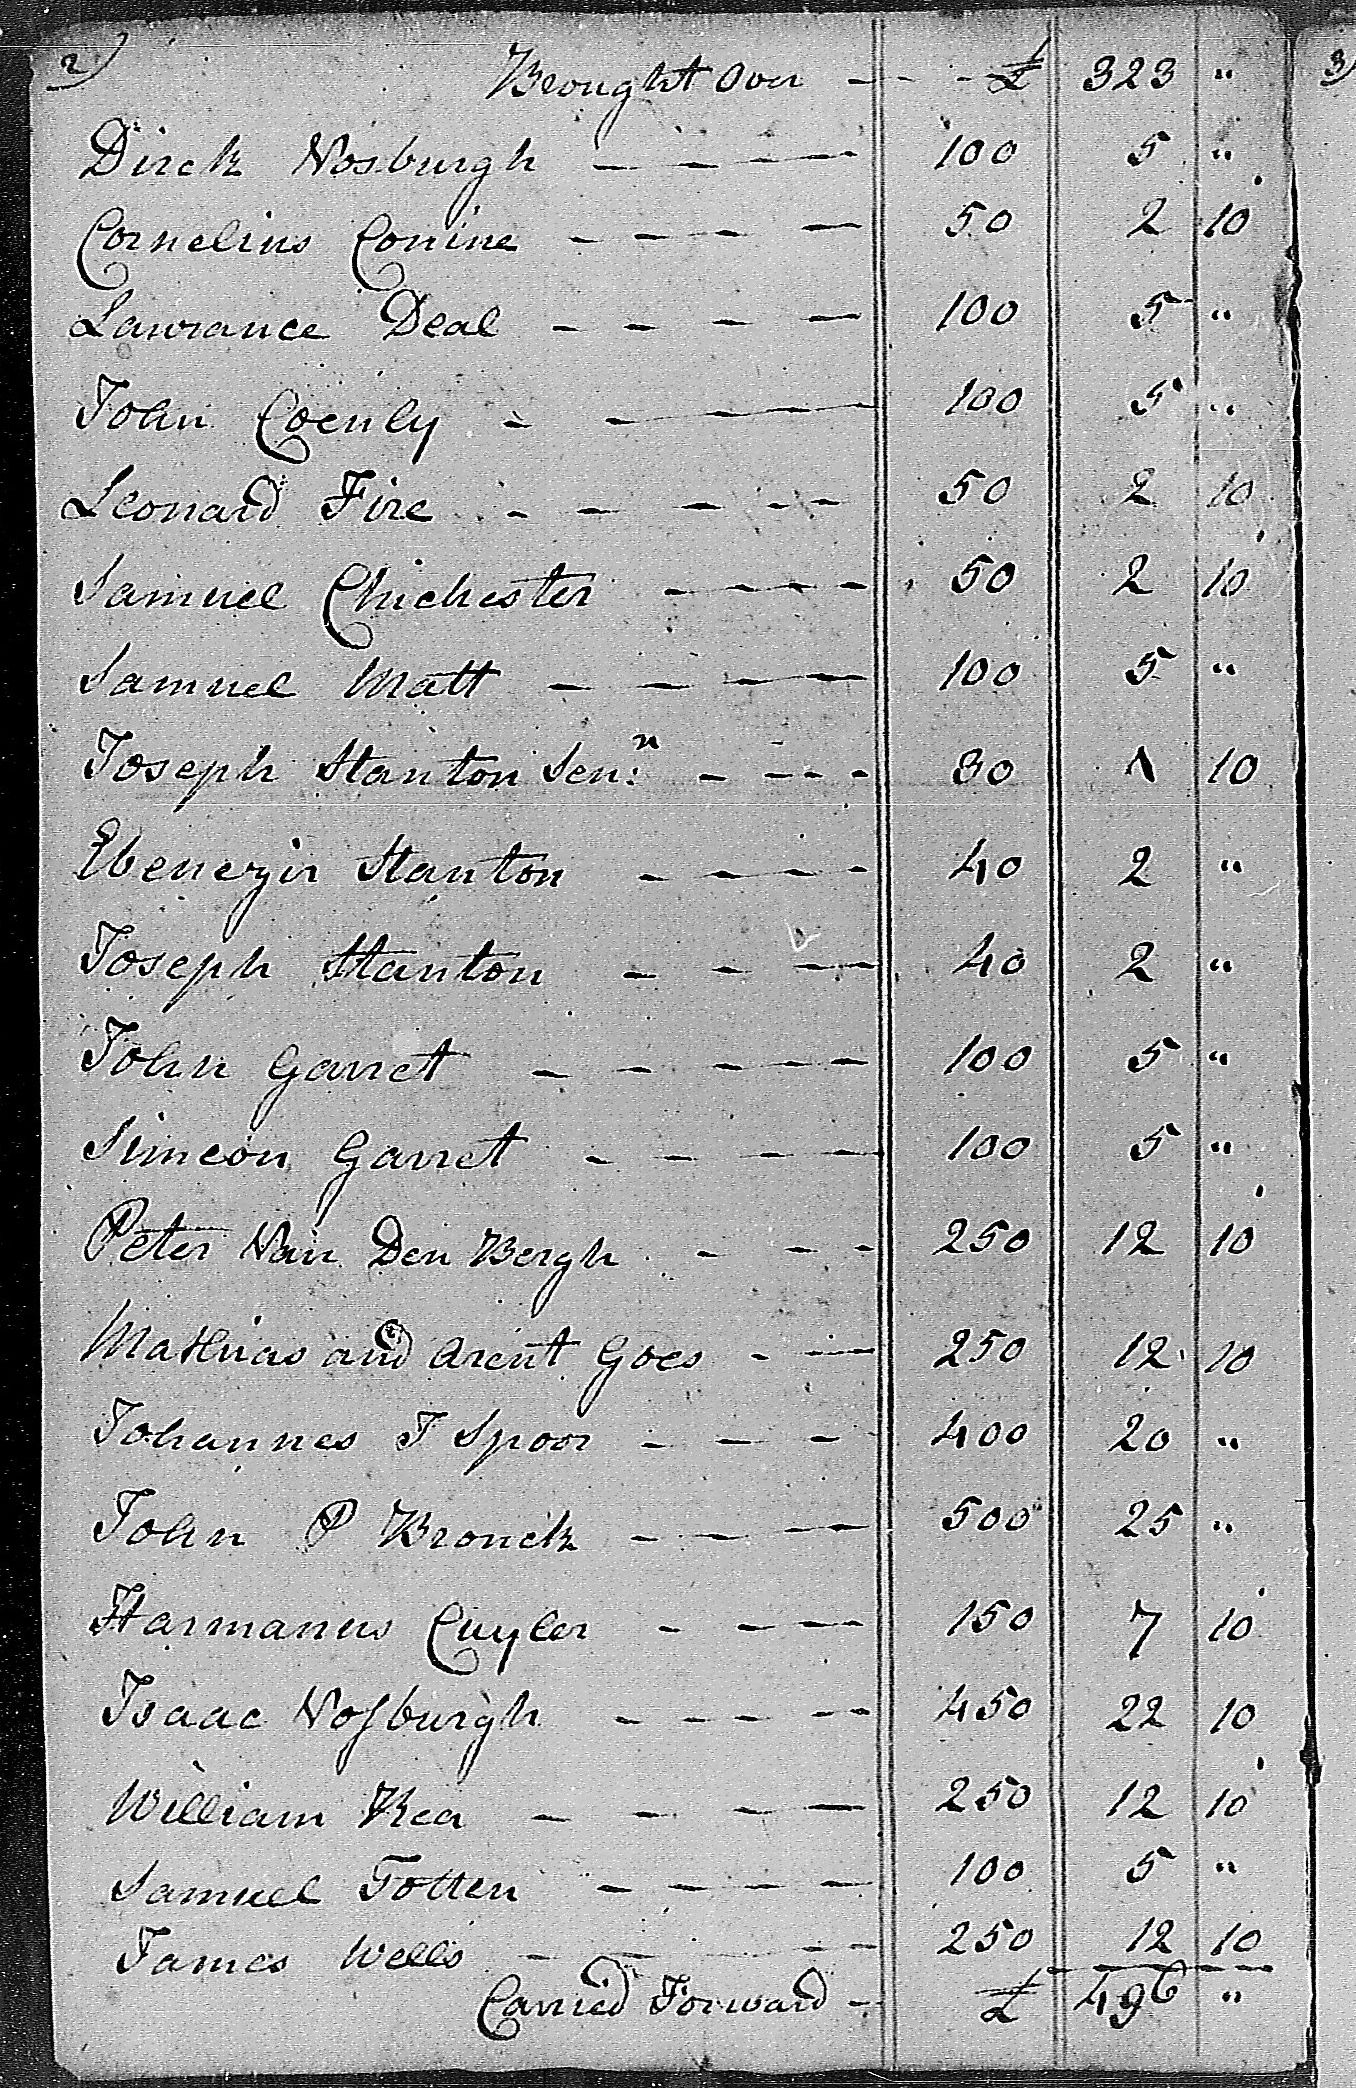 2) Brought Over - - - £ 323 "
Dirck Vosburgh - - - - 100 5 "
Cornelius Conine - - - - 50 2 10
Lawrance Deal - - - - 100 5 "
John Coenly - - - - - 100 5 "
Leonard Fire - - - - - 50 2 10
Samuel Chichester - - - - 50 2 10
Samuel Matt - - - - 100 5 "
Joseph Stanton Sen:r - - - - 30 1 10
Ebenezir Stanton - - - - 40 2 "
Joseph Stanton - - - - 40 2 "
John Garret - - - - - 100 5 "
Simeon Garret - - - - 100 5 "
Peter Van Den Bergh - - - 250 12 10
Mathias and Arent Goes - - - 250 12 10
Johannes J Spoor - - - 400 20 "
John P Bronck - - - - 500 25 "
Harmanus Cuyler - - - - 150 7 10
Isaac Vosburgh - - - - - 450 22 10
William Kea - - - - 250 12 10
Samuel Totten - - - - - 100 5 "
James Wells - - - - - 250 12 10
Carried Forward - £ 496 "
3)